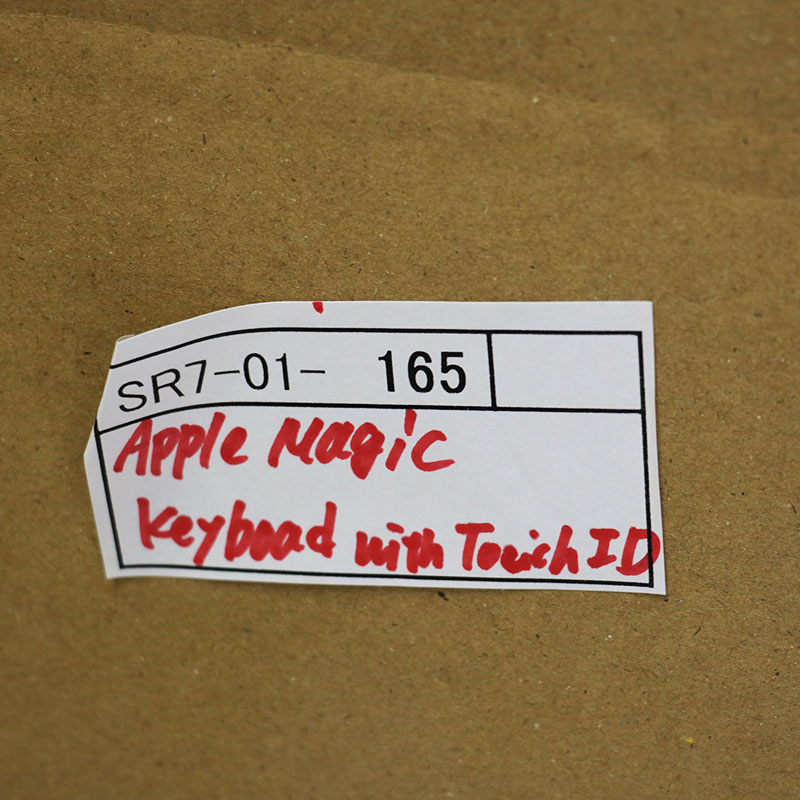 SR7-01- 165
Apple Magic
Keyboad with Touch ID